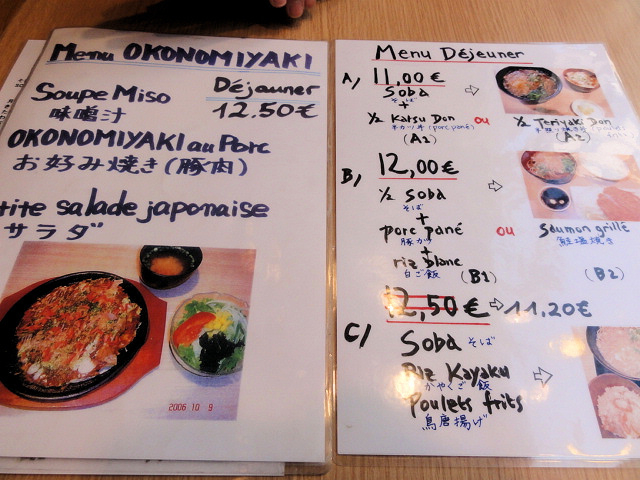 Menu OKONOMIYAKI
Déjauner
12.50€
Soupe Miso
味噌汁
OKONOMIYAKI au Porc
お好み焼き(豚肉)
tite salade japonaise
サラダ
2006 10 9
Menu Déjeuner
A) 11,00 €
Soba
そば
+
½ Katsu Don ou ½ Teriyaki Don
(porc pané)
(poulet) frits
(A1) (A2)
B) 12,00 €
½ Soba
そば
+
porc pané ou Saumon grillé
豚カツ 鮭塩焼き
+
riz blanc
白ご飯 (B1) (B2)
12,50 € ⇨ 11,20€
C) Soba そば
Riz Kayaku
かやくご飯
Poulets frits
鳥唐揚げ